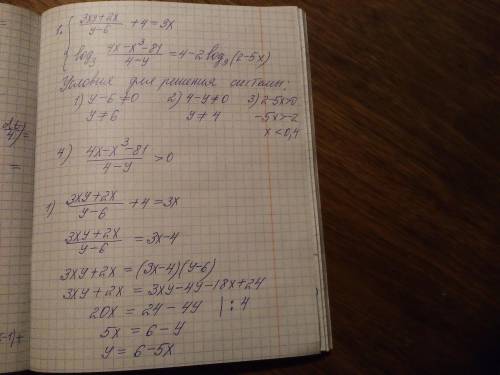 1. { (3xy+2x)/(y-6) + 4 = 3x
{ log₃ (4x-x³-81)/(4-y) = 4-2log₉(2-5x)
Условия для решения системы:
1) y-6≠0 2) 4-y≠0 3) 2-5x>0
y≠6 y≠4 -5x>-2
x<0,4
4) (4x-x³-81)/(4-y) >0
1) (3xy+2x)/(y-6) + 4 = 3x
(3xy+2x)/(y-6) = 3x-4
3xy+2x = (3x-4)(y-6)
3xy+2x = 3xy-4y-18x+24
20x = 24-4y |:4
5x = 6-y
y = 6-5x